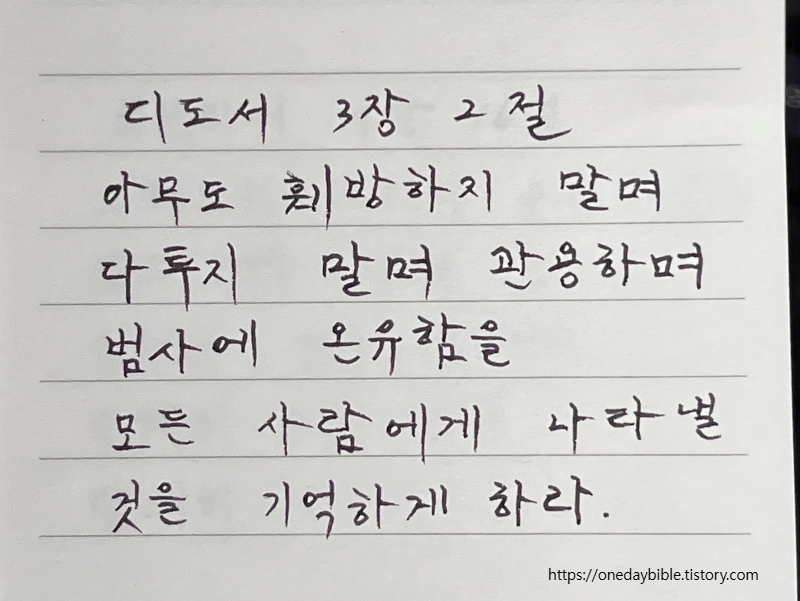 디도서 3장 2절
아무도 훼방하지 말며
다투지 말며 관용하며
범사에 온유함을
모든 사람에게 나타낼
것을 기억하게 하라.
https://onedaybible.tistory.com